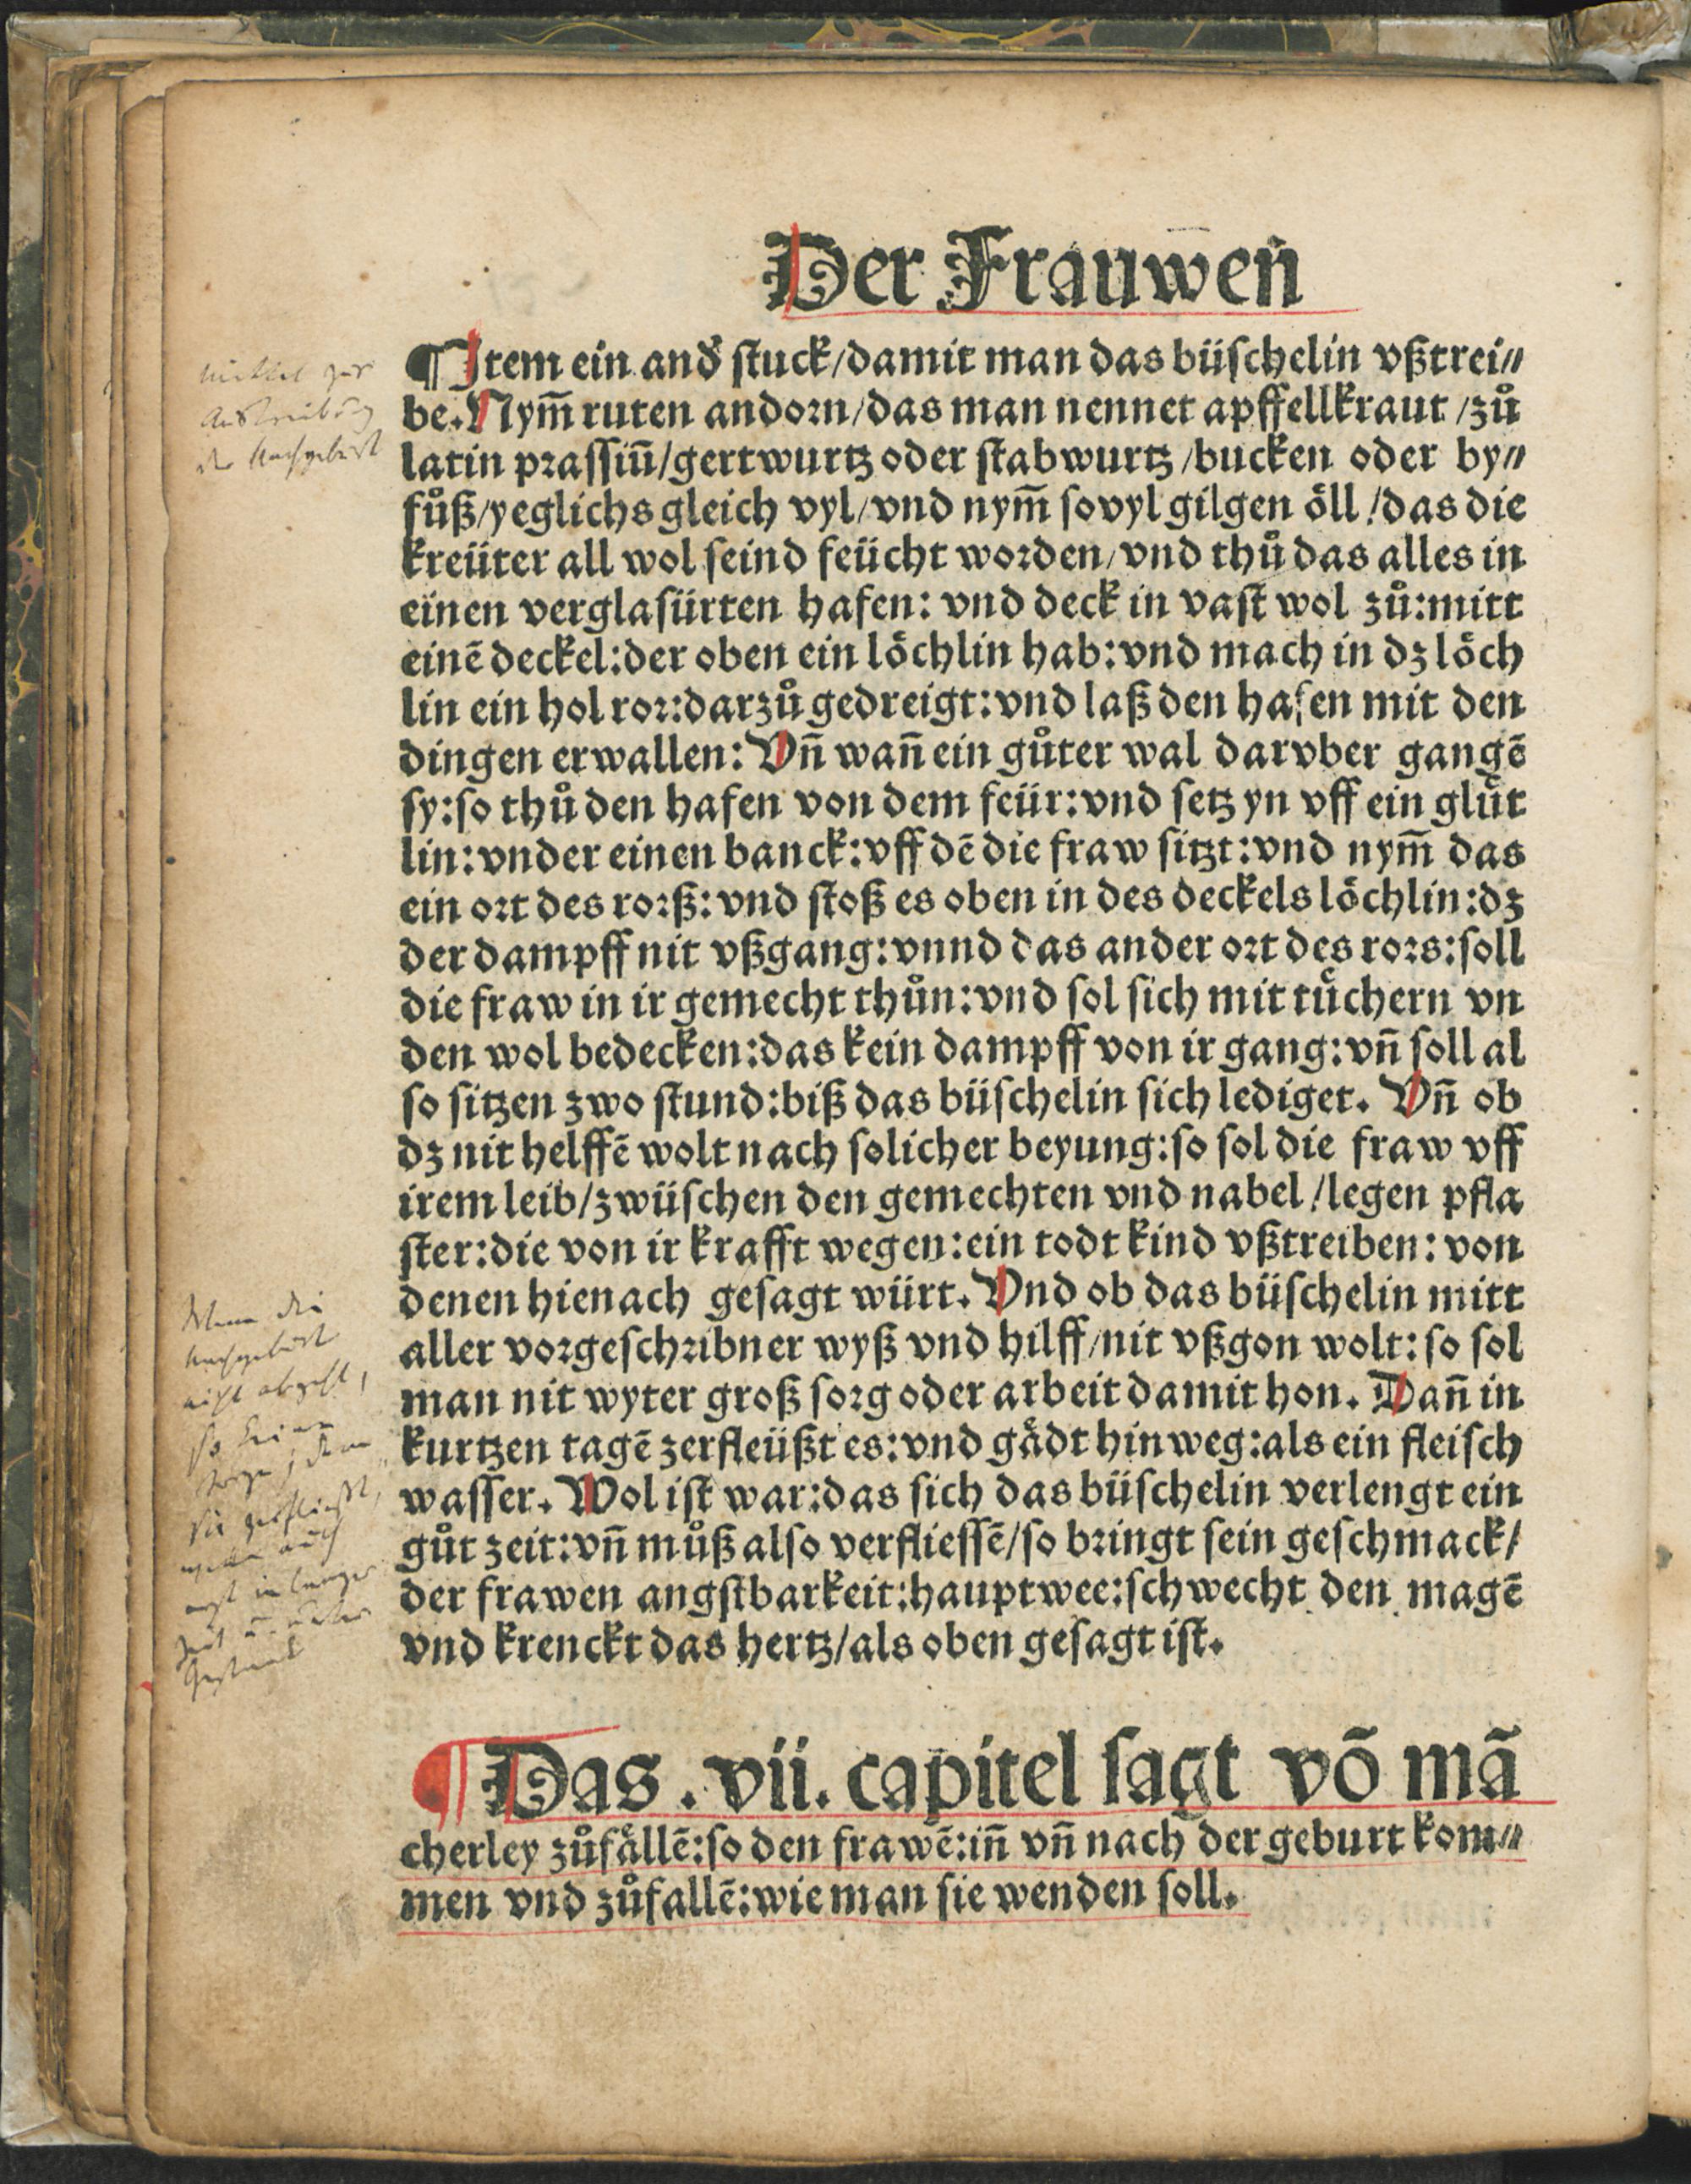 Der Frauwen̄
¶ Item ein and̾ ſtuck/damit man das büſchelin vßtrei⸗
be. Nym̄ ruten andorn/das man nennet apffellkraut/zů
latin praſſiū/gertwurtz oder ſtabwurtz/bucken oder by⸗
fůß/yeglichs gleich vyl/vnd nym̄ ſo vyl gilgen öll/das die
kreüter all wol ſeind feücht worden/vnd thů das alles in
einen verglaſürten hafen: vnd deck in vaſt wol zů:mitt
einē deckel:der oben ein löchlin hab:vnd mach in dz löch
lin ein hol ror:darzů gedreigt:vnd laß den hafen mit den
dingen erwallen: Vn̄ wan̄ ein gůter wal darvber gangē
ſy:ſo thů den hafen von dem feür:vnd ſetz yn vff ein glüt
lin:vnder einen banck:vff dē die fraw ſitzt:vnd nym̄ das
ein ort des rorß:vnd ſtoß es oben in des deckels löchlin:dz
der dampff nit vßgang:vnnd das ander ort des rors:ſoll
die fraw in ir gemecht thůn:vnd ſol ſich mit tüchern vn
den wol bedecken:das kein dampff von ir gang:vn̄ ſoll al
ſo ſitzen zwo ſtund:biß das büſchelin ſich lediget. Vn̄ ob
dz nit helffē wolt nach ſolicher beyung:ſo ſol die fraw vff
irem leib/zwüſchen den gemechten vnd nabel/legen pfla
ſter:die von ir krafft wegen:ein todt kind vßtreiben: von
denen hienach geſagt würt. Vnd ob das büſchelin mitt
aller vorgeſchribner wyß vnd hilff/nit vßgon wolt: ſo ſol
man nit wyter groß ſorg oder arbeit damit hon. Dan̄ in
kurtzen tagē zerfleüßt es:vnd gådt hinweg:als ein fleiſch
waſſer. Wol iſt war:das ſich das büſchelin verlengt ein
gůt zeit:vn̄ můß alſo verflieſſē/ſo bringt ſein geſchmack/
der frawen angſtbarkeit:hauptwee:ſchwecht den magē
vnd krenckt das hertz/als oben geſagt iſt.
¶ Das .vii. capitel ſagt vō mā
cherley zůfällē:ſo den frawē:in̄ vn̄ nach der geburt kom⸗
men vnd zůfallē:wie man ſie wenden ſoll.
Mittel zur
Austreibung
der Nachgeburt
Wenn die
Nachgeburt
nicht abgeht,